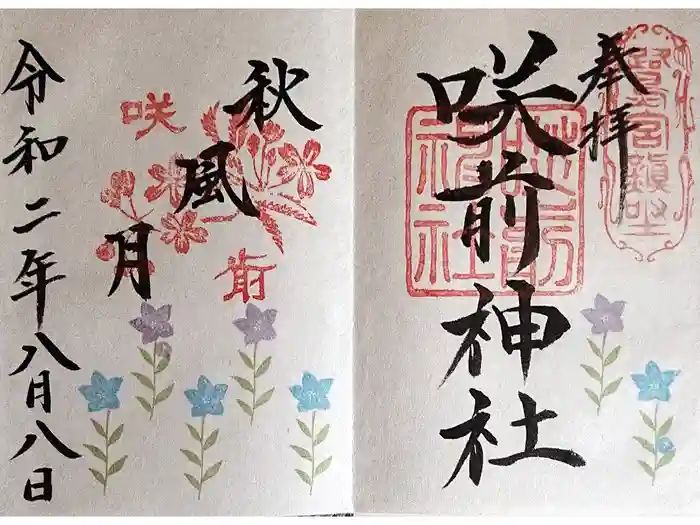 奉拝
咲前神社
咲前神社
鷺宮鎮坐
秋風月
咲前
令和二年八月八日